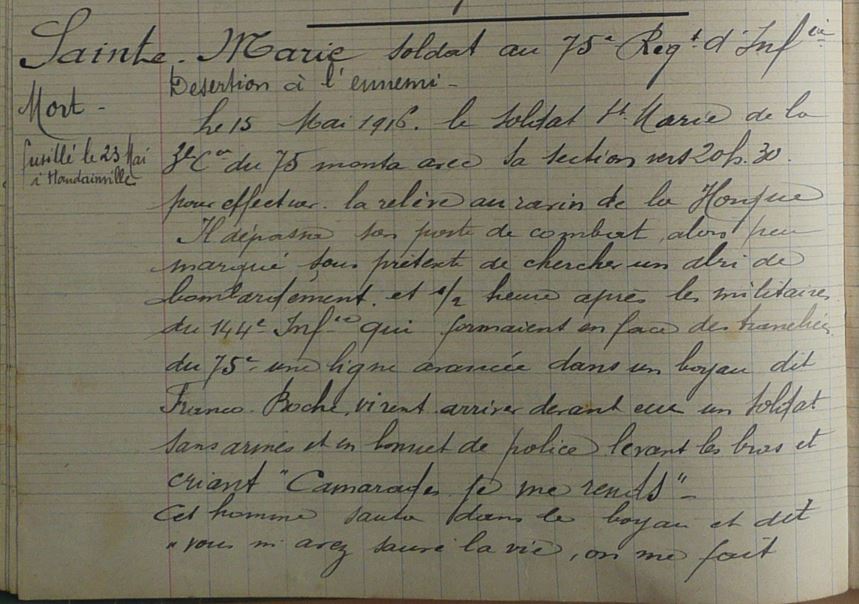 Sainte-Marie soldat au 75e Regt d'Infie
Desertion à l'ennemi -
Mort -
fusillé le 23 Mai
à Haudainville
Le 15 Mai 1916. le soldat Ste Marie de la
Cie du 75 monta avec sa section vers 20h.30.
pour effectuer la relève au ravin de la Horgne
Il dépassa son poste de combat, alors peu
marqué sous prétexte de chercher un abri de
bombardement. et 1/2 heure après les militaires
du 144e Infie qui formaient en face des tranchées
du 75e une ligne avancée dans un boyau dit
Franco-Boche, virent arriver devant eux un soldat
sans armes et en bonnet de police levant les bras et
criant "Camarades je me rends" -
Cet homme sauta dans le boyau et dit
"vous m'avez sauvé la vie, on me fait